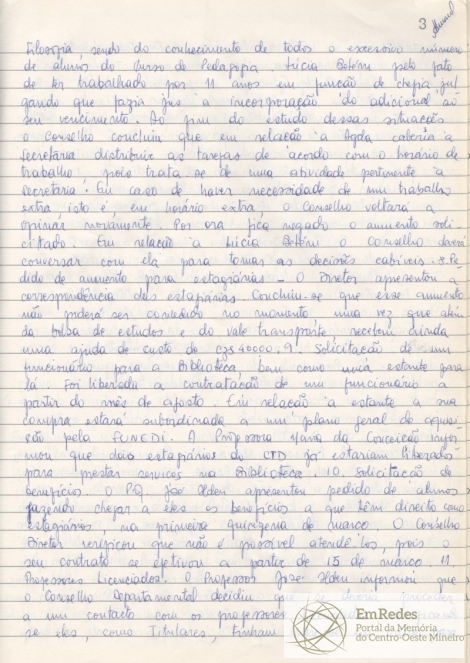 3
Filosofia, sendo do conhecimento de todos o excessivo número
de alunos do Curso de Pedagogia. Lúcia Botém pelo fato
de ter trabalhado por 11 anos em função de chefia, jul
gando que fazia jus a incorporação do adicional ao
seu vencimento. Ao fim do estudo dessas situações
o Conselho concluiu que em relação à Agda caberia à
secretária distribuir as tarefas de acordo com o horário de
trabalho, pois trata se de uma atividade pertinente à
secretaria. Em caso de haver necessidade de um trabalho
extra, isto é, em horário extra, o Conselho voltará a
opinar novamente. Por ora fica negado o aumento soli-
citado. Em relação à Lúcia Botém o Conselho deverá
conversar com ela para tomar as decisões cabíveis. 8. Pe
dido de aumento para estagiárias - O Diretor apresentou a
correspondência das estagiárias. Concluiu-se que esse aumento
não poderá ser concedido no momento, uma vez que além
da bolsa de estudos e do vale transporte, recebem ainda
uma ajuda de custo de Cz$ 400,00. 9. Solicitação de um
funcionário para a Biblioteca, bem como uma estante para
lá. Foi liberada a contratação de um funcionário a
partir do mês de agosto. Em relação à estante a sua
compra estará subordinada a um plano geral de aqui
sição pela FUNEDI. A Professora Maria da Conceição infor
mou que dois estagiários do CTD já estariam liberados
para prestar serviços na Biblioteca. 10. Solicitação de
benefícios. O Prof. José Heldeu apresentou pedido de alunos
fazendo chegar a eles os benefícios a que têm direito como
estagiários, na primeira quinzena de março. O Conselho
Diretor verificou que não é possível atendê-los, pois o
seu contrato se efetivou a partir de 15 de março. 11.
Professores Licenciados. O Professor José Heldeu informou que
o Conselho Departamental decidiu que
a um contacto com os professores
se eles, como Titulares, tinham
EmRedes
Portal da Memória
do Centro-Oeste Mineiro